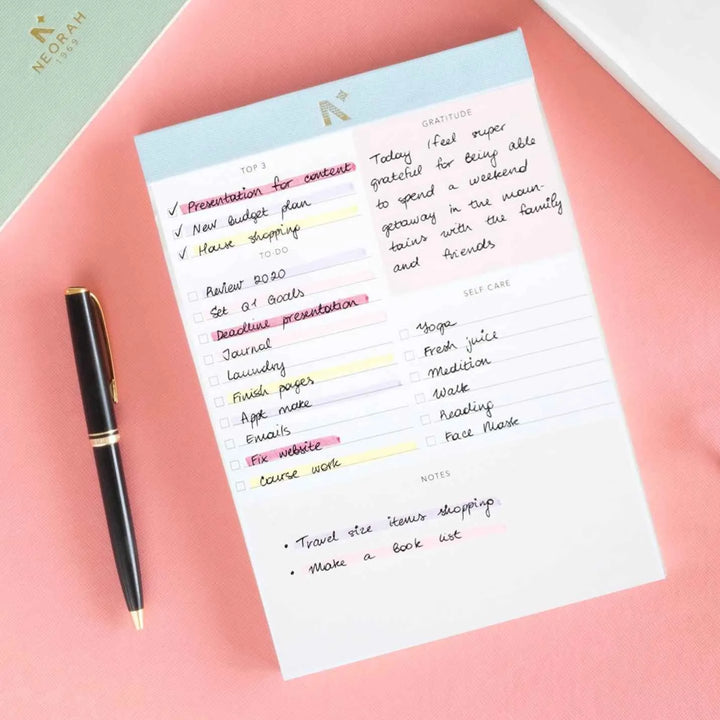 NEORAH
1969
TOP 3
✓ Presentation for content
✓ New budget plan
✓ House shopping
TO-DO
Review 2020
Set Q1 Goals
Deadline presentation
Journal
Laundry
Finish pages
Appt make
Emails
Fix website
Course work
GRATITUDE
Today I feel super
grateful for being able
to spend a weekend
getaway in the moun-
tains with the family
and friends
SELF CARE
Yoga
Fresh juice
Medition
Walk
Reading
Face Mask
NOTES
• Travel size items shopping
• Make a book list